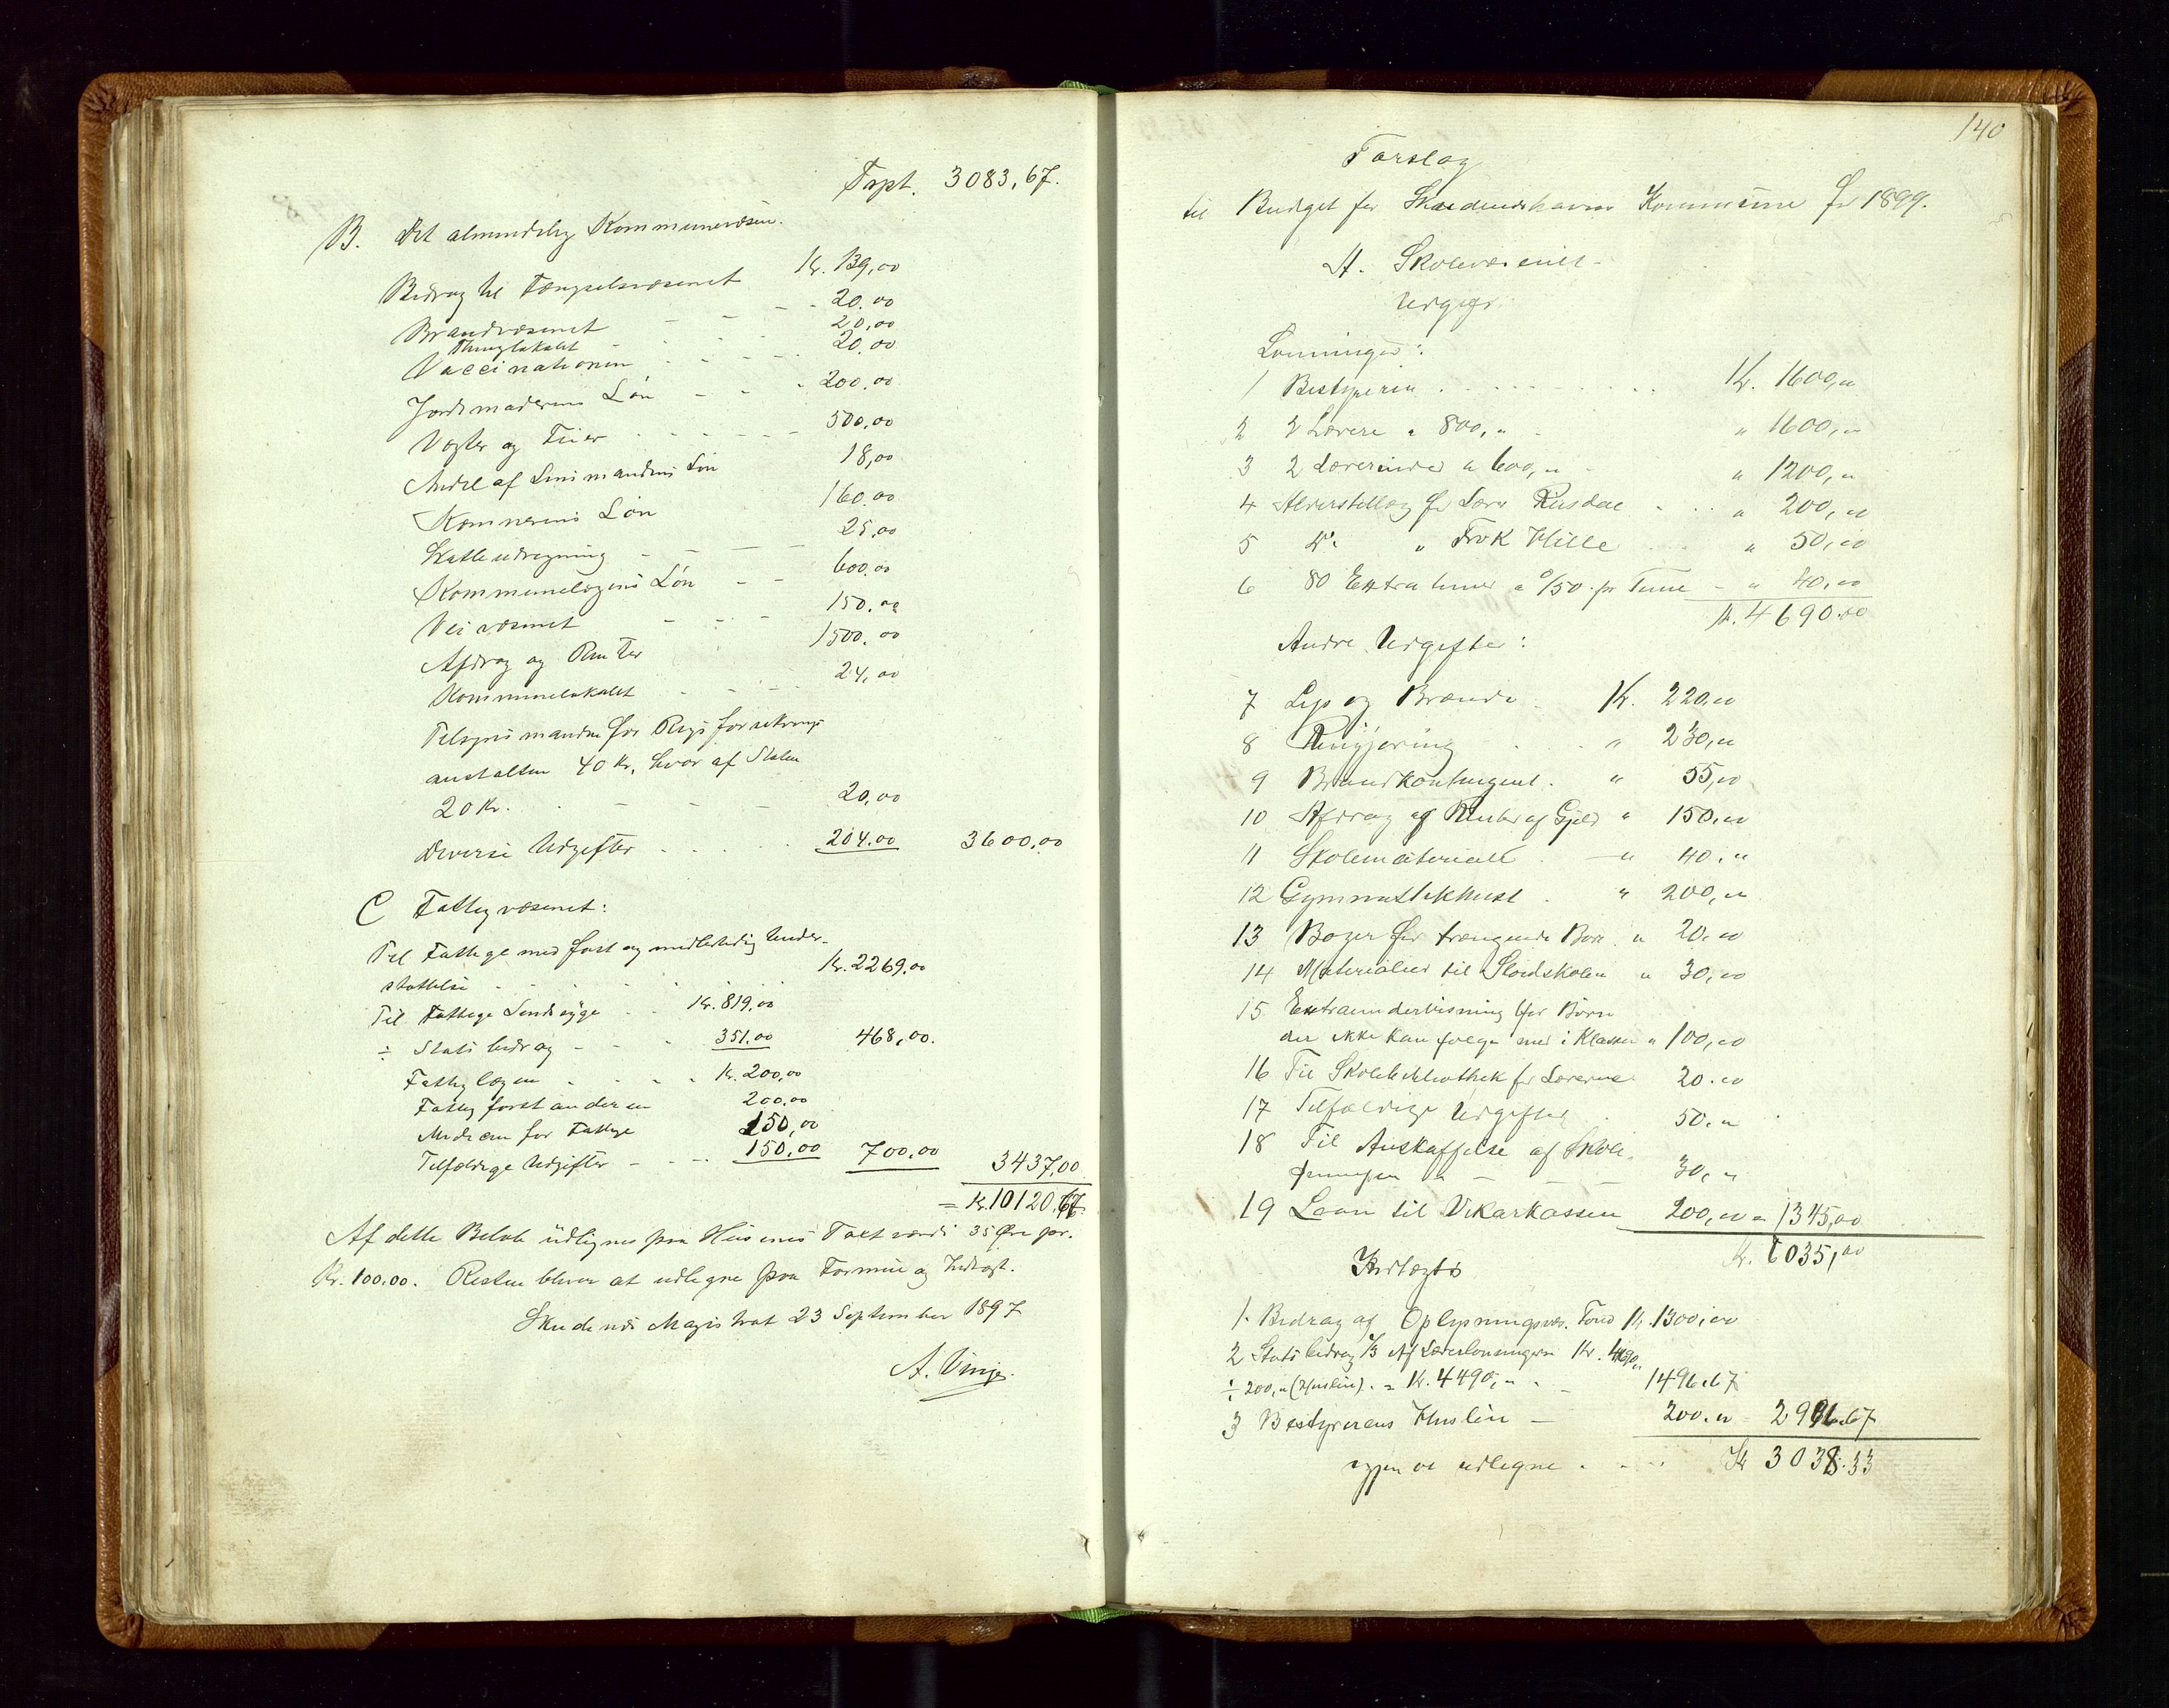 Trpt. 3083,67.
B. Det almindelig Kommunevæsen.
Bidrag til Fængselsvæsenet Kr. 139,00
Brandvæsenet - - - - 20.00
Thinglokalet - - 20,00
Vaccinationen - - - - 20.00
Jordmoderens Løn - - - 200.00
Vægter og Feier - - - - 500,00
Andel af Linsmandens Løn 18,00
Kæmnerens Løn 160.00
Skatteudregning - - - - 25,00
Kommunelægens Løn - - 600.00
Veivæsenet - - - 150.00
Afdrag og Renter 1500.00
Kommunelokalet - - - 24,00
Tilsynsmanden for Rigsforsikrings
anstalten 40 Kr, hvor af Staten
20 Kr. - - - 20,00
Diverse Udgifter - - - - 204.00 3600.00
C Fattigvæsenet:
Til Fattige med fast og midlertidig Under-
støttelse - - - - - Kr. 2269,00
Til Fattige Sindssyge - - Kr. 819,00
÷ Statsbidrag - - - 351.00 468,00.
Fattiglægen - - - - Kr. 200,00
Fattigforstanderen 200.00
Medicin for Fattige 150,00
Tilfældige Udgifter - - - 150,00 700.00 3437,00
= Kr. 10120.67
Af dette Beløb udlignes paa Husenes Taxtværdi 35 Øre pr.
Kr. 100.00. Resten bliver at udligne paa Formue og Indtægt.
Skudenes Magistrat 23 September 1897
A. Vinje.
140
Forslag
til Budget for Skudeneshavns Kommune for 1899.
A. Skolevæsenet.
Udgift.
Lønninger:
1 Bestyreren . . . . Kr. 1600,„
2 2 Lærere a 800,„ „ 1600,„
3 2 Lærerinder a 600,„ „ 1200,„
4 Alderstillæg for Lærer Risdal . . „ 200,„
5 do „ Frøk Hille . . „ 50,00
6 80 Extra timer a 0/50 pr Time - „ 40,00
Kr. 4690.00
Andre Udgifter:
7 Lys og Brænde Kr. 220,00
8 Rengjøring . . „ 230,„
9 Brandkontingent . „ 55,00
10 Afdrag og Renter af Gjeld „ 150,00
11 Skolemateriell . — „ 40,„
12 Gymnastikhuset . „ 200,„
13 Bøger for trængende Børn „ 20,00
14 Materialier til Sløidskolen „ 30,00
15 Extraundervisning for Børn
der ikke kan følge med i Klassen „ 100,00
16 Til Skolebibliothek for Lærerne 20.00
17 Tilfældige Udgifter . 50.„
18 Til Anskaffelse af Skole-
30,„
19 Laan til Vikarkassen 200,00 = 1345,00
Kr. 6035,00
Indtægts
1. Bidrag af Oplysningsvæs. Fond Kr. 1300,00
2 Statsbidrag 1/3 Af Lærerlønningen Kr. 4690,„
÷ 200,„ (Husleie) . = Kr. 4490,„ . - 1496.67
3 Bestyrerens Husleie — 200.00 = 2996.67
igjen at udligne . - . . Kr 3038.33